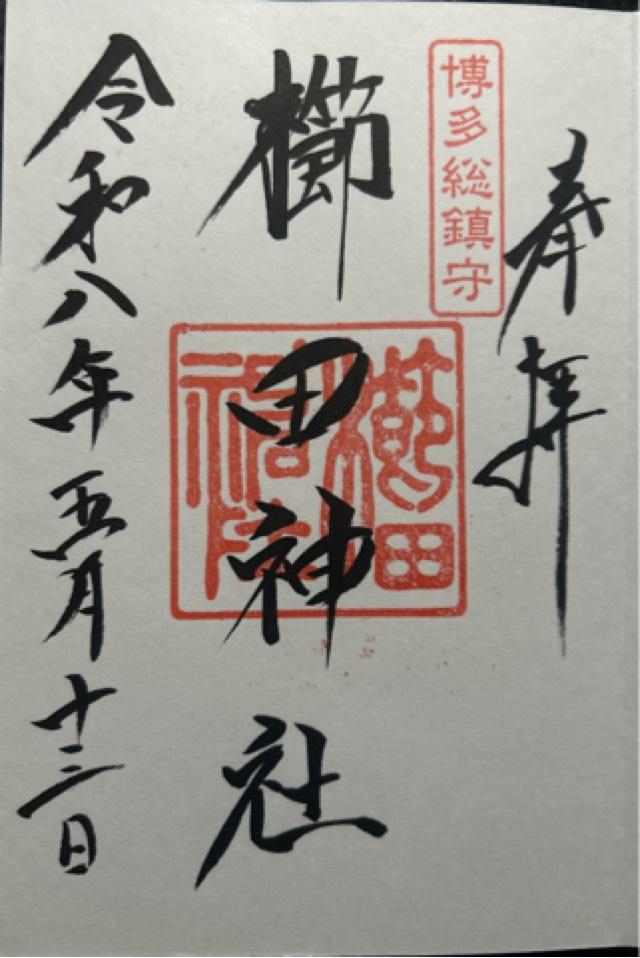 奉拝
博多総鎮守
櫛田神社
令和八年五月十三日